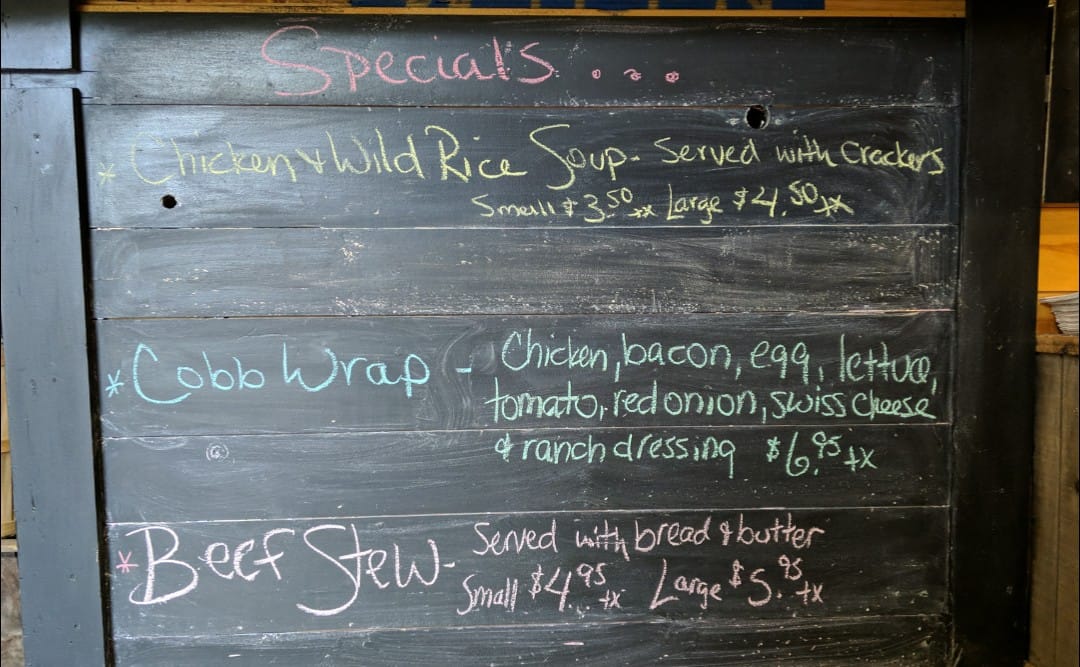 Specials...
* Chicken & Wild Rice Soup - Served with Crackers
Small $3.50 tx Large $4.50 tx
* Cobb Wrap - Chicken, bacon, egg, lettuce,
tomato, red onion, swiss cheese
& ranch dressing $6.95 tx
* Beef Stew - Served with bread & butter
Small $4.95 tx Large $5.95 tx